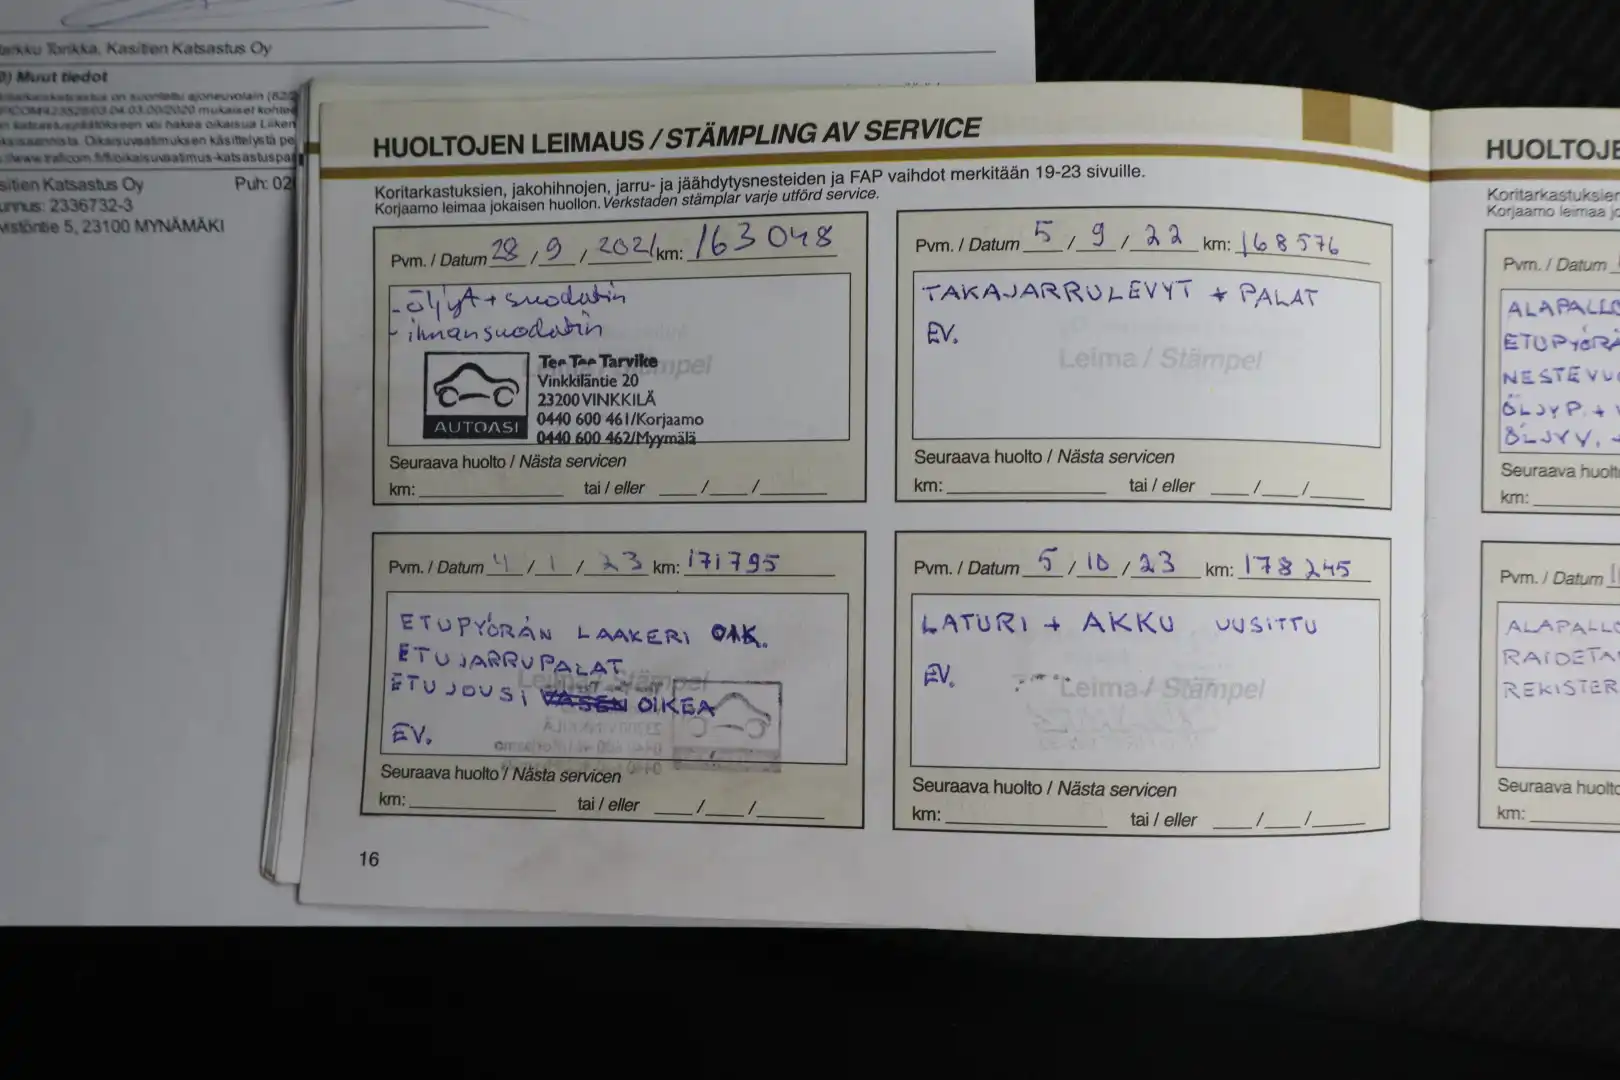 Kasitien Katsastus Oy
Muut tiedot
Kasitien Katsastus Oy
Puh: 02
2336732-3
5, 23100 MYNÄMÄKI
HUOLTOJEN LEIMAUS / STÄMPLING AV SERVICE
Koritarkastuksien, jakohihnojen, jarru- ja jäähdytysnesteiden ja FAP vaihdot merkitään 19-23 sivuille.
Korjaamo leimaa jokaisen huollon. Verkstaden stämplar varje utförd service.
Pvm. / Datum 28 / 9 / 2021 km: 163 048
- öljyt + suodatin
- ilmansuodatin
Tee Tee Tarvike
Vinkkiläntie 20
23200 VINKKILÄ
0440 600 461/Korjaamo
0440 600 462/Myymälä
AUTOASI
Seuraava huolto / Nästa servicen
km: tai / eller / /
Pvm. / Datum 5 / 9 / 22 km: 168576
TAKAJARRULEVYT + PALAT
EV.
Leima / Stämpel
Seuraava huolto / Nästa servicen
km: tai / eller / /
Pvm. / Datum 4 / 1 / 23 km: 171795
ETUPYÖRÄN LAAKERI OIK.
ETUJARRUPALAT
Leima / Stämpel
ETUJOUSI VASEN OIKEA
EV.
Seuraava huolto / Nästa servicen
km: tai / eller / /
Pvm. / Datum 5 / 10 / 23 km: 178 245
LATURI + AKKU UUSITTU
EV.
Leima / Stämpel
Seuraava huolto / Nästa servicen
km: tai / eller / /
16
HUOLTOJE
Koritarkastuksien
Korjaamo leimaa jo
Pvm. / Datum
ALAPALLO
ETUPYÖRÄ
NESTEVU
ÖLJYP. +
ÖLJYV. +
Seuraava huolto
km:
Pvm. / Datum
ALAPALLO
RAIDETA
REKISTER
Seuraava huolto
km: